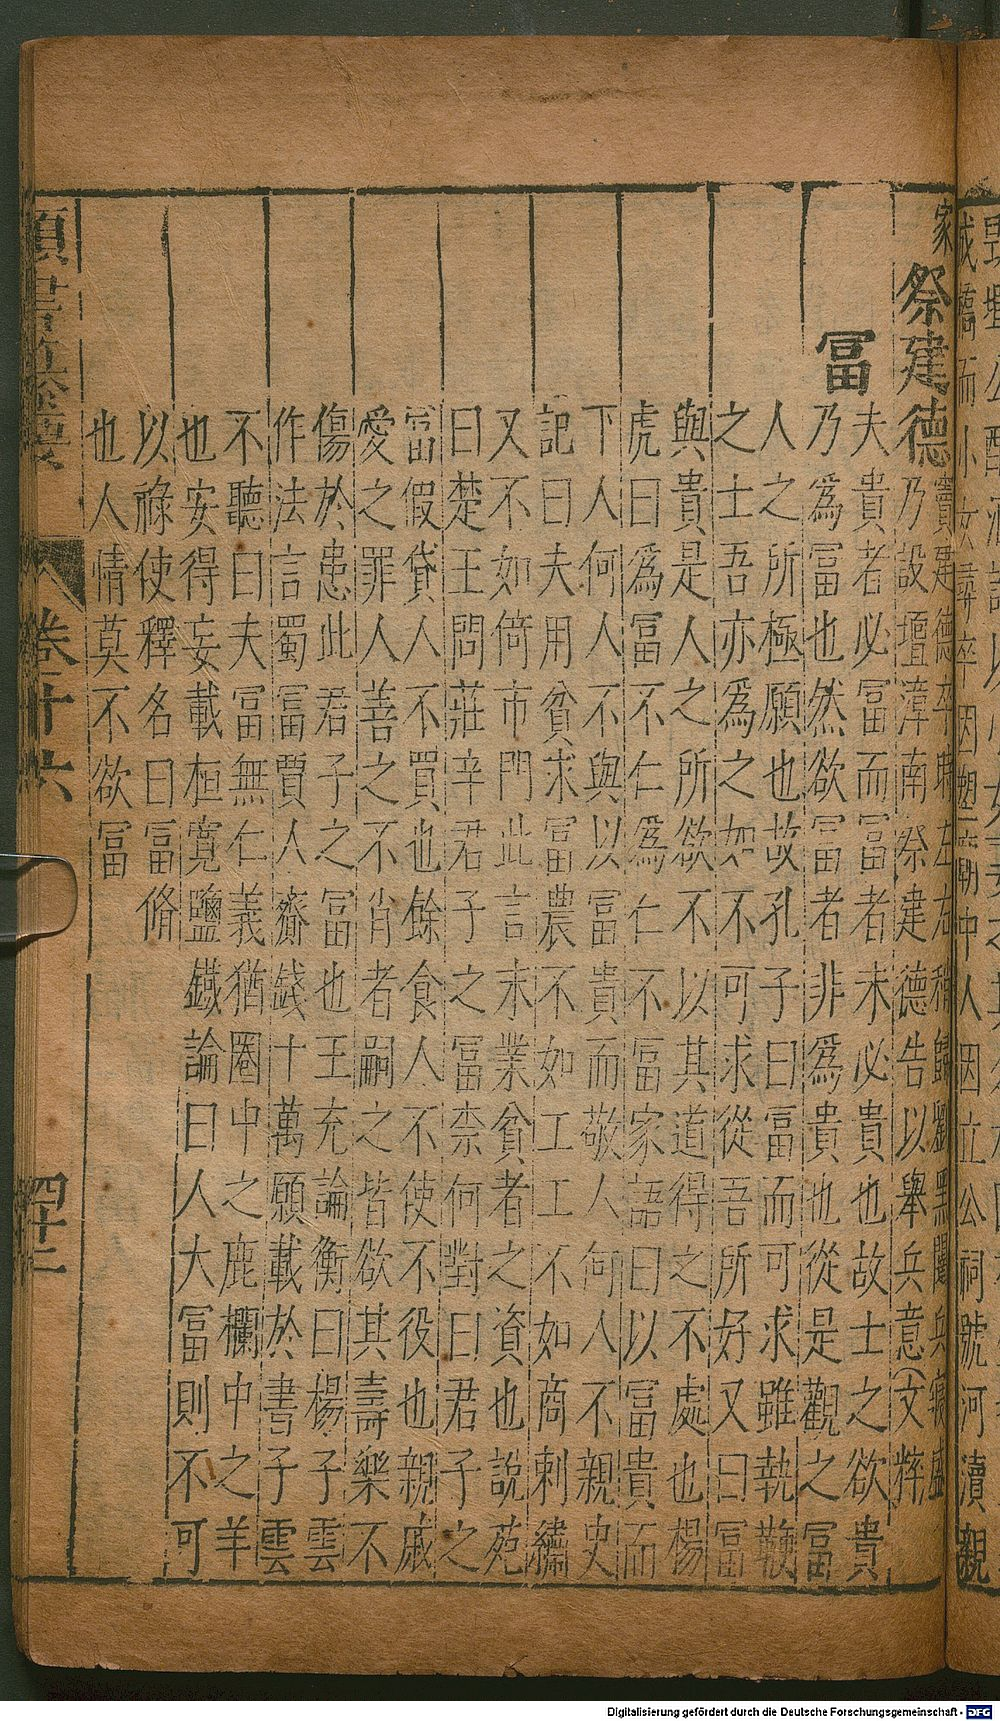 成
因塑廟中人因立公祠號河瀆親
家
祭建德
竇建德卒時左右稱歸劉黑闥兵寖盛
乃設壇漳南祭建德告以舉兵意(文粹
冨
夫貴者必冨而冨者未必貴也故士之欲貴
乃爲冨也然欲冨者非爲貴也從是觀之冨
人之所極願也故孔子曰冨而可求雖執鞭
之士吾亦爲之如不可求從吾所好又曰冨
與貴是人之所欲不以其道得之不處也楊
虎曰爲冨不仁爲仁不冨家語曰以冨貴而
下人何人不與以冨貴而敬人何人不親史
記曰夫用貧求冨農不如工工不如商刺繡
又不如倚市門此言末業貧者之資也說苑
曰楚王問莊辛君子之冨柰何對曰君子之
冨假貸人不買也餘食人不使不役也親戚
愛之罪人善之不肖者嗣之皆欲其壽樂不
傷於患此君子之冨也王充論衡曰楊子雲
作法言蜀冨賈人齎錢十萬願載於書子雲
不聽曰夫冨無仁義猶圈中之鹿欄中之羊
也安得妄載桓寬鹽鐵論曰人大冨則不可
以祿使釋名曰冨脩
也人情莫不欲冨
卷二十六
四十二
Digitalisierung gefördert durch die Deutsche Forschungsgemeinschaft - DFG